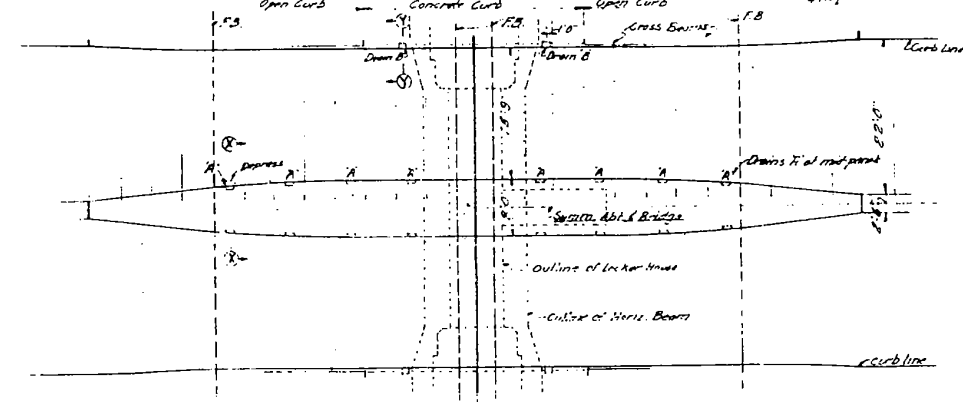 Open Curb
Concrete Curb
Open Curb
F.B.
Y
F.B.
1'0"
Cross Beams
F.B.
Curb Line
Drain B
Drain B
Y
X
A
Depress
A
A
A
A
A
A
A
Drains A at mid panel
Symm. Abt. ₵ Bridge
Outline of Locker House
X
Outline of Horiz. Beam
Curb line